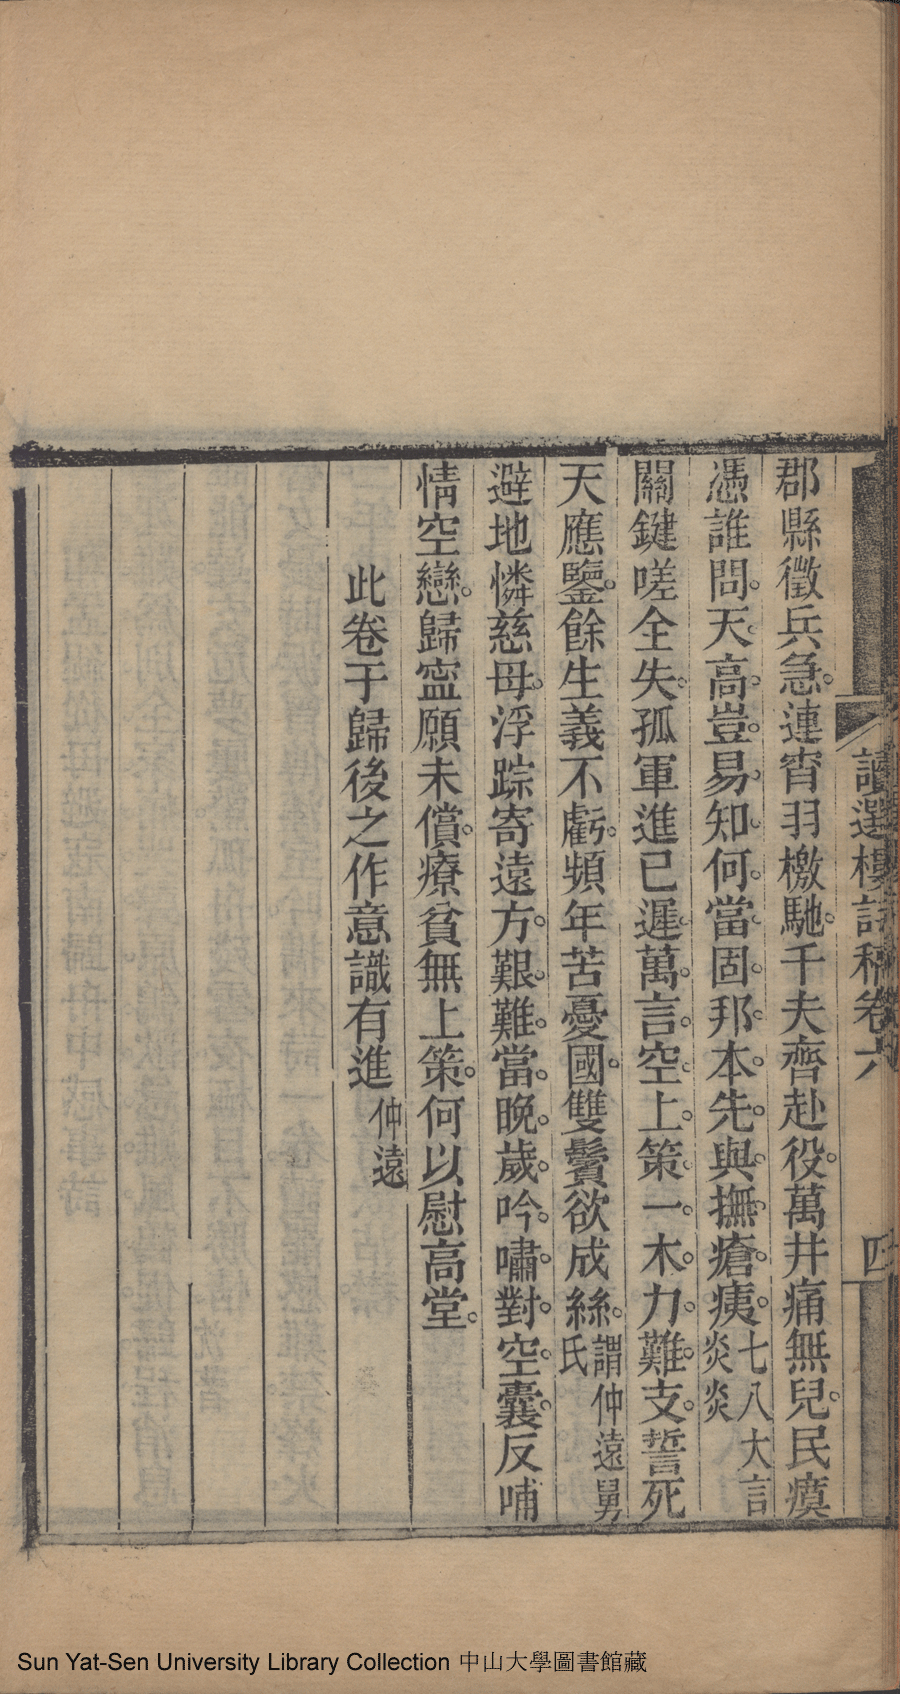 讀選樓詩稿卷六
四
郡縣徵兵急。連宵羽檄馳。千夫齊赴役。萬井痛無兒。民瘼
憑誰問。天高豈易知。何當固邦本。先與撫瘡痍。七八大言炎炎
關鍵嗟全失。孤軍進已遲。萬言空上策。一木力難支。誓死
天應鑒。餘生義不虧。頻年苦憂國。雙鬢欲成絲。謂仲遠舅氏
避地憐慈母。浮踪寄遠方。艱難當晚歲。吟嘯對空囊。反哺
情空戀。歸寍願未償。療貧無上策。何以慰高堂。
此卷于歸後之作意識有進仲遠
Sun Yat-Sen University Library Collection 中山大學圖書館藏